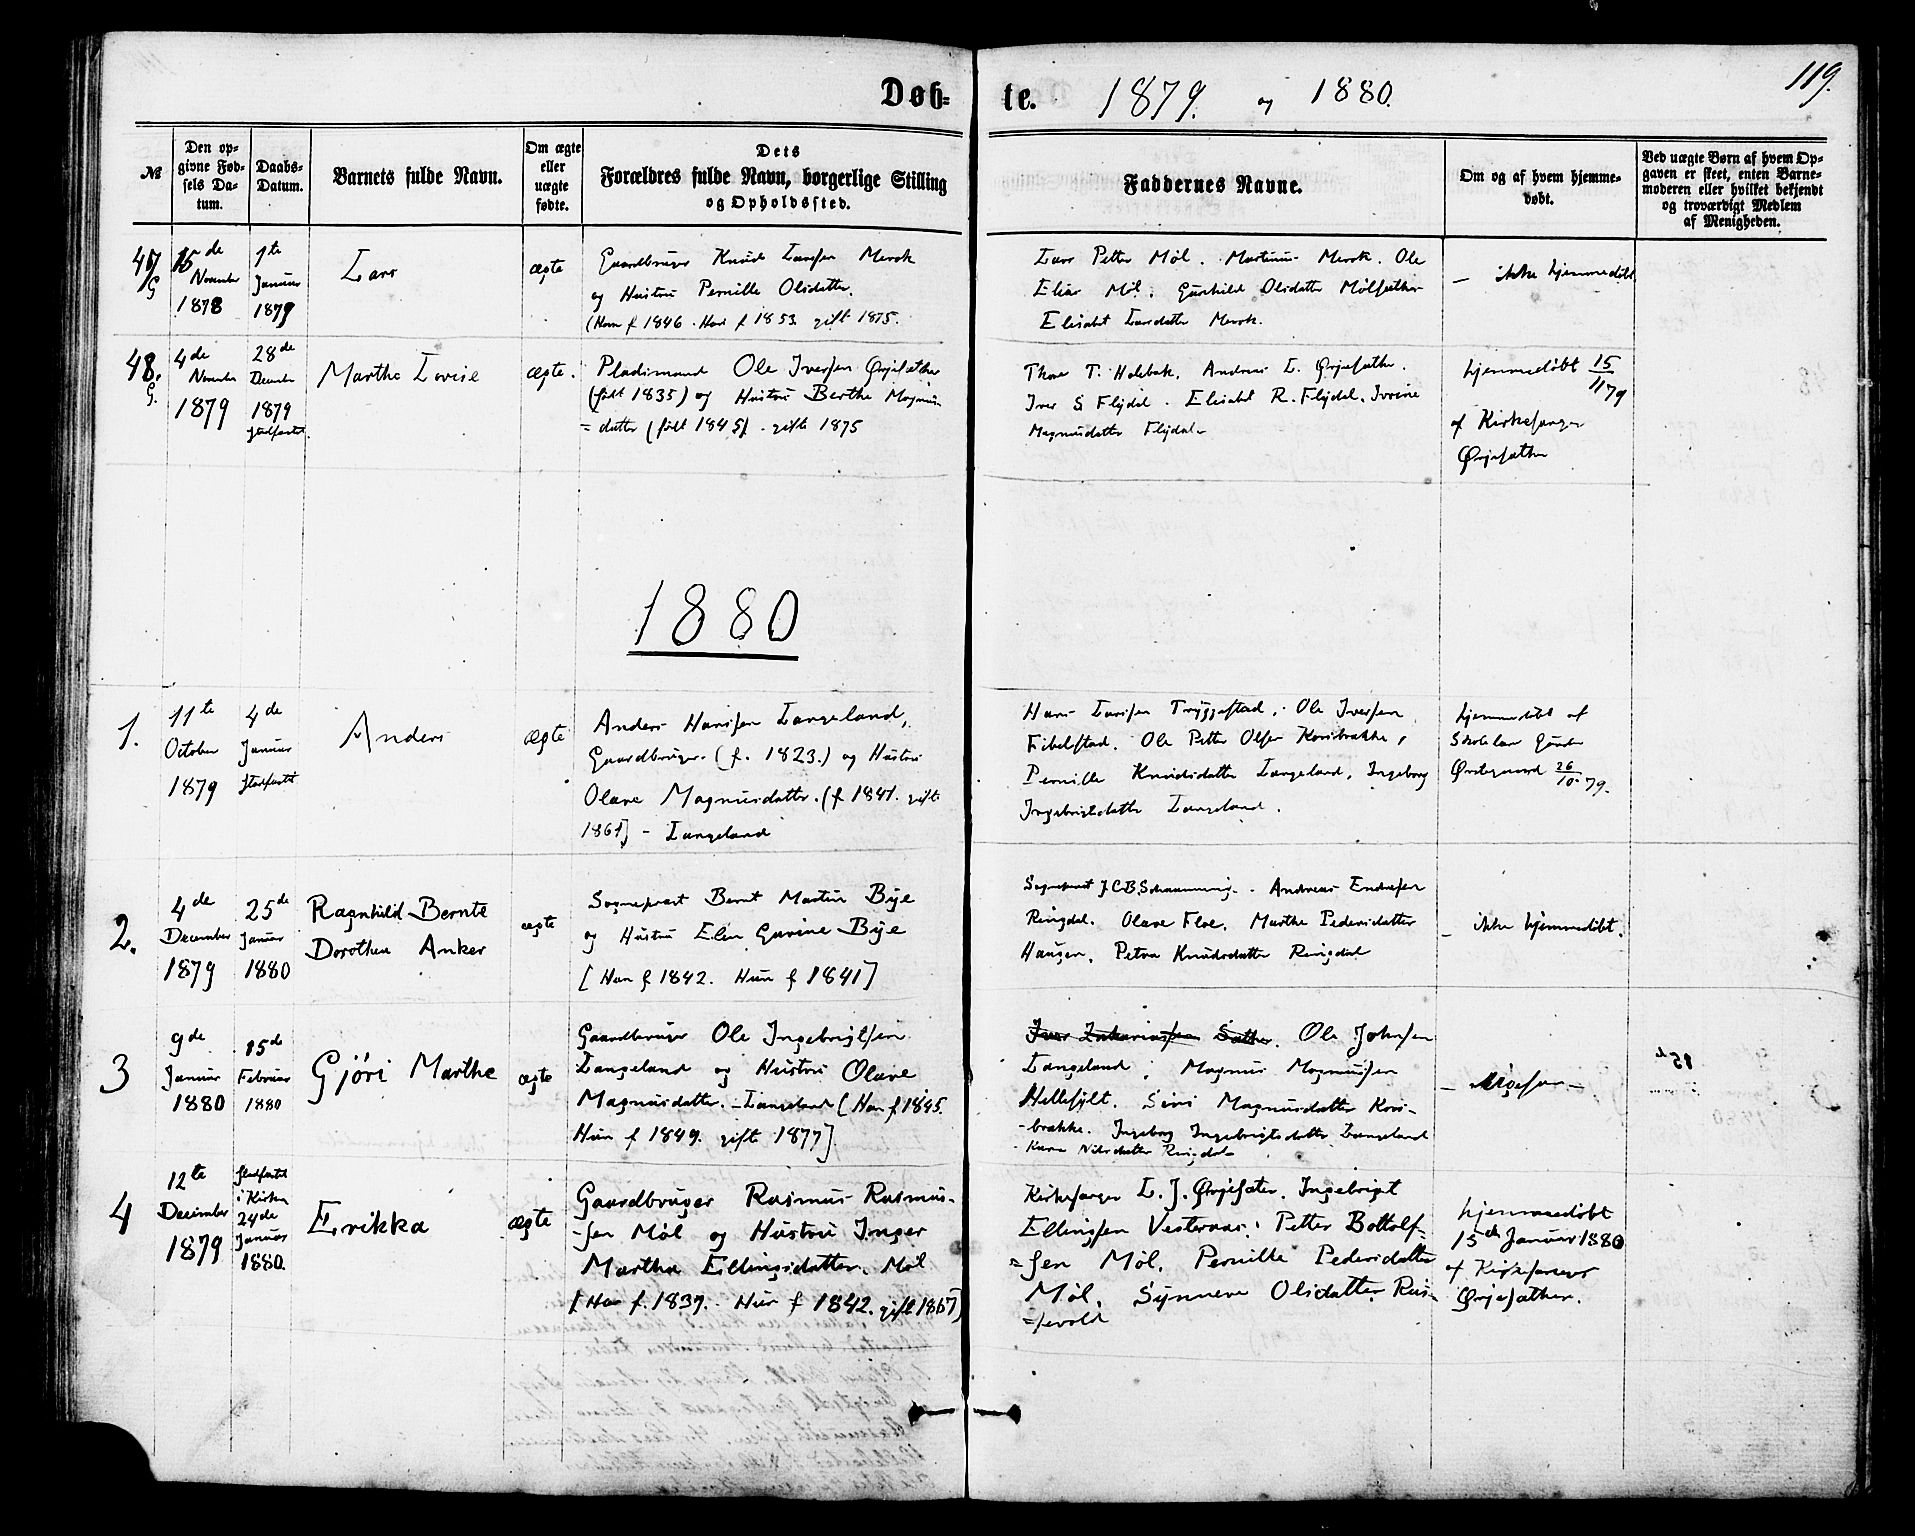 Døb-
te. 1879. og 1880.
119.
№
Den op-
givne Fød-
sels Da-
tum.
Daabs-
Datum.
Barnets fulde Navn.
Om ægte
eller
uægte
fødte.
Dets
Forældres fulde Navn, borgerlige Stilling
og Opholdssted.
Faddernes Navne.
Om og af hvem hjemme-
døbt.
Ved uægte Børn af hvem Op-
gaven er skeet, enten Barne-
moderen eller hvilket bekjendt
og troværdigt Medlem
af Menigheden.
47
G
15de
November
1878
1te
Januar
1879
Lars
ægte
Gaardbruger Knud Larsen Merok
og Hustru Pernille Olsdatter.
(Han f 1846. Hun f 1853. gift 1875.
Lars Petter Møl. Martinus Merok. Ole
Elias Møl. Gunhild Olsdatter Mølsæther
Elisabet Larsdatter Merok.
– ikke hjemmedøbt
48.
G.
4de
November
1879
28de
December
1879
stadfæstet.
Marthe Lovise
ægte.
Pladsmand Ole Iversen Ørjesæther
(født 1835) og Hustru Berthe Magnus
= datter (født 1845). gifte 1875
Thore T. Holebak. Andreas L. Ørjesæther.
Iver S Flydal. Elisabet R. Flydal. Ivrine
Magnusdatter Flydal
hjemmedøbt 15/11 79
af Kirkesanger
Ørjesæther
1880
1.
11te
October
1879
4de
Januar
stadfæstet
Anders
ægte
Anders Hansen Langeland,
Gaardbruger. (f. 1823.) og Hustru
Olave Magnusdatter. (f 1841. gifte
1861] – Langeland
Hans Larsen Tryggestad, Ole Iversen
Fibelstad. Ole Petter Olsen Korsbrække,
Pernille Knudsdatter Langeland, Ingeborg
Ingebrigtsdatter Langeland.
hjemmedøbt af
Skolelærer
Ørstegaard 26/10 79.
2.
4de
December
1879
25de
Januar
1880
Ragnhild Bernte
Dorothea Anker
ægte
Sogneprest Bernt Martin Bye
og Hustru Elen Gurine Bye
[Han f 1842. Hun f 1841]
Sogneprest J.C.B. Schaanning. Andreas Endresen
Ringdal. Olave Floe. Marthe Pedersdatter
Haugen, Petra Knudsdatter Ringdal
– ikke hjemmedøbt.
3
9de
Januar
1880
15de
Februar
1880
Gjøri Marthe
ægte
Gaardbruger Ole Ingebrigtsen
Langeland og Hustru Olave
Magnusdatter. – Langeland [Han f 1845.
Hun f 1849. gift 1877]
Iver Zakariassen Sæther. Ole Johnsen
Langeland, Magnus Magnussen
Hellesylt. Sivri Magnusdatter Kors-
-brække. Ingeborg Ingebrigtsdatter Langeland
Karen Nilsdatter Ringdal
– ligesaa –
4
12te
December
1879
stadfæstet
i Kirken
24de
Januar
1880.
Erikka
ægte
Gaardbruger Rasmus Rasmus-
-sen Møl og Hustru Inger
Martha Ellingsdatter. Møl
[Han f. 1837. Hun f 1842. gift 1867]
Kirkesanger L. J. Ørjesæter. Ingebrigt
Ellingsen Vesteraas, Petter Bottolf-
=sen Møl, Pernille Pedersdatter
Møl. Synneve Olsdatter Rus-
=sevold
hjemmedøbt
15de Januar 1880
af Kirkesanger
Ørjesæther.